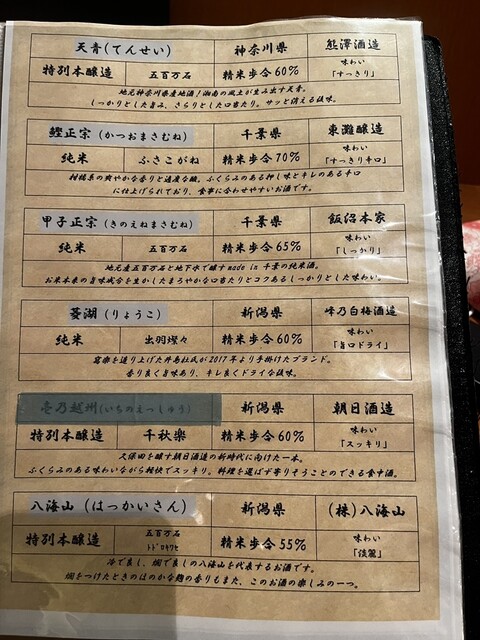 天青(てんせい) 神奈川県 熊澤酒造
特別本醸造 五百万石 精米歩合60% 味わい
「すっきり」
地元神奈川県産地酒!湘南の風土が生み出す天青。
しっかりとした旨み、さらりとした口当たり。サッと消える後味。
鰹正宗(かつおまさむね) 千葉県 東灘醸造
純米 ふさこがね 精米歩合70% 味わい
「すっきり辛口」
柑橘系の爽やかな香りと適度な酸。ふくらみのある押し味とキレのある辛口
に仕上げられており、食事に合わせやすいお酒です。
甲子正宗(きのえねまさむね) 千葉県 飯沼本家
純米 五百万石 精米歩合65% 味わい
「しっかり」
地元産五百万石と地下水で醸すmade in 千葉の純米酒。
お米本来の旨味成分を生かしたまろやかな口当たりとコクあるしっかりとした味わい。
菱湖(りょうこ) 新潟県 峰乃白梅酒造
純米 出羽燦々 精米歩合60% 味わい
「旨口ドライ」
を造り上げた井島杜氏が2017年より手掛けたブランド。
香り良く旨味あり、キレ良くドライな後味。
壱乃越州(いちのえっしゅう) 新潟県 朝日酒造
特別本醸造 千秋楽 精米歩合60% 味わい
「スッキリ」
久保田を醸す朝日酒造の新時代に向けた一本。
ふくらみのある味わいながら軽快でスッキリ。料理を選ばず寄りそうことのできる食中酒。
八海山(はっかいさん) 新潟県 (株)八海山
特別本醸造 五百万石
トドロキワセ 精米歩合55% 味わい
「淡麗」
冷で良し、燗で良しの八海山を代表するお酒です。
燗をつけたときのほのかな麹の香りもまた、このお酒の楽しみの一つ。